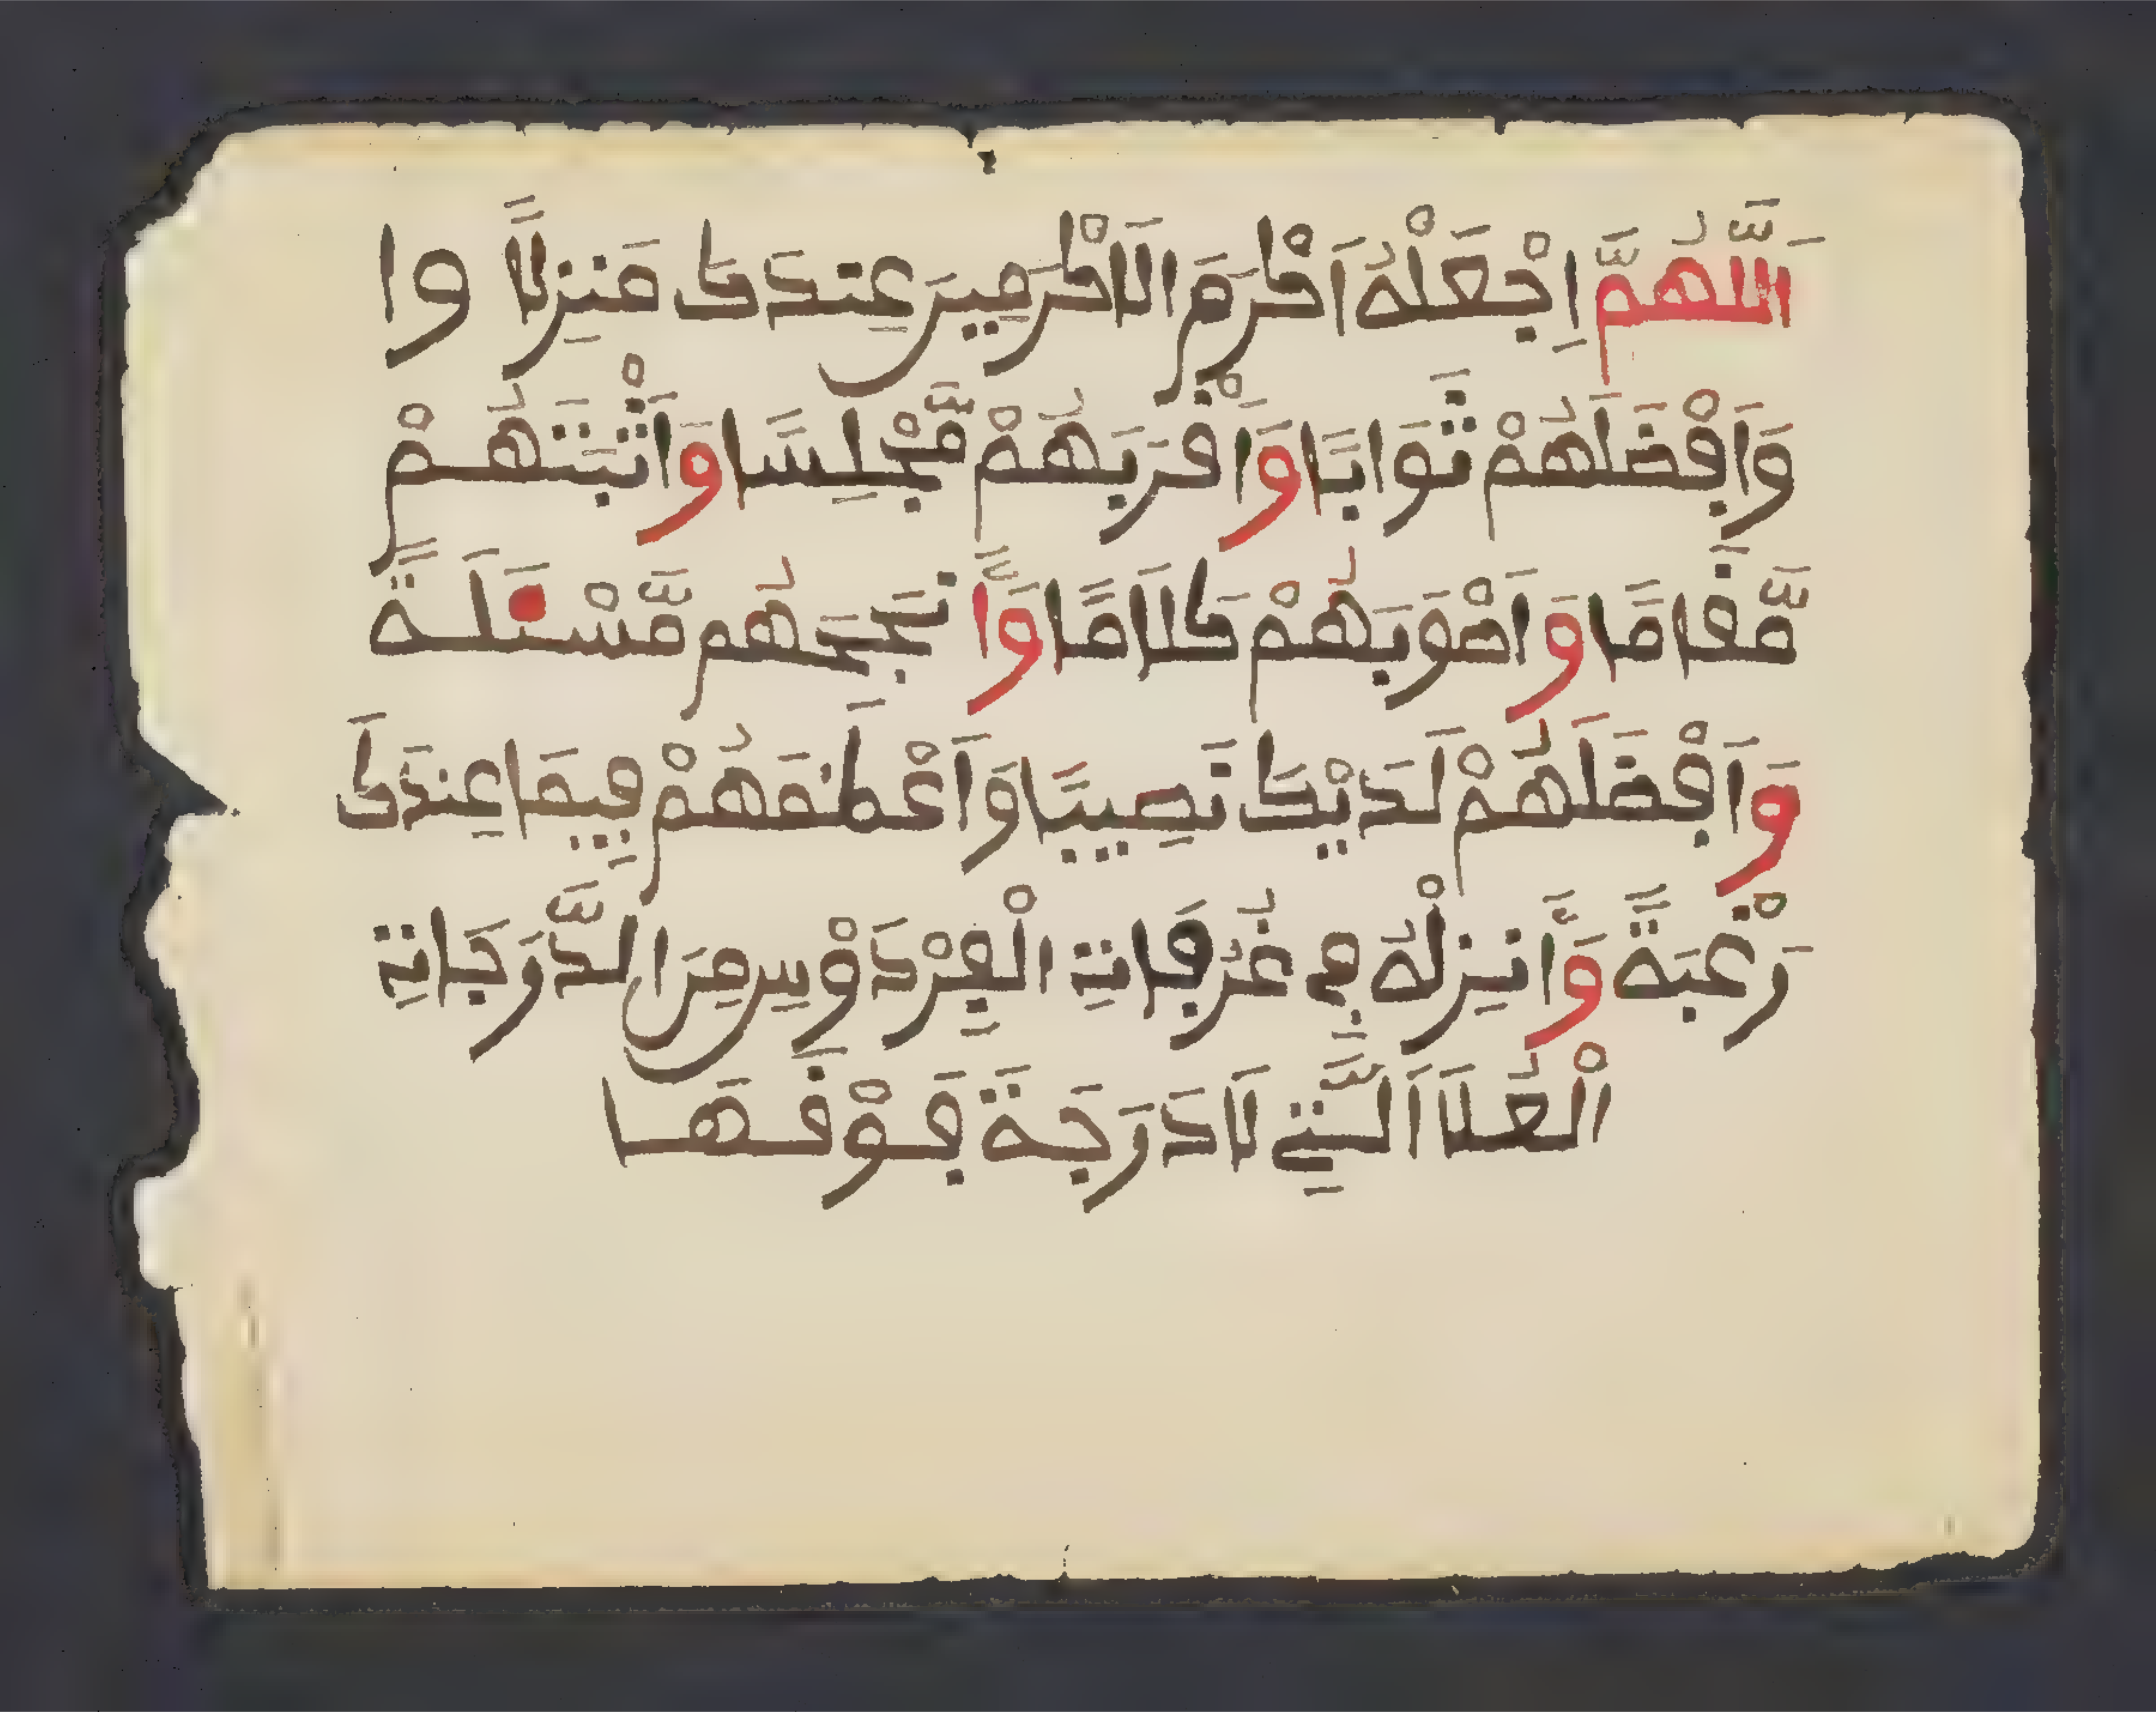 اَللَّهُمَّ اِجْعَلْهُ اَكْرَمَ الَاكْرَمِينَ عِندَكَ مَنزِلًا وا
وَاَفْضَلَهُمْ ثَوَابًا وَاَقْرَبَهُمْ مَّجْلِسًا وَاَثْبَتَهُمْ
مَّقَامًا وَاَصْوَبَهُمْ كَلَامًا وَّانجَحَهُم مَّسْئَلَةً
وَاَفْضَلَهُمْ لَدَيْكَ نَصِيبًا وَاَعْظَمَهُمْ فِيمَا عِندَكَ
رَغْبَةً وَّانزِلْهُ فِي غُرُفَاتِ الْفِرْدَوْسِ مِنَ الدَّرَجَاتِ
الْعُلَا اَلَّتِي لَا دَرَجَةَ فَوْقَهَا